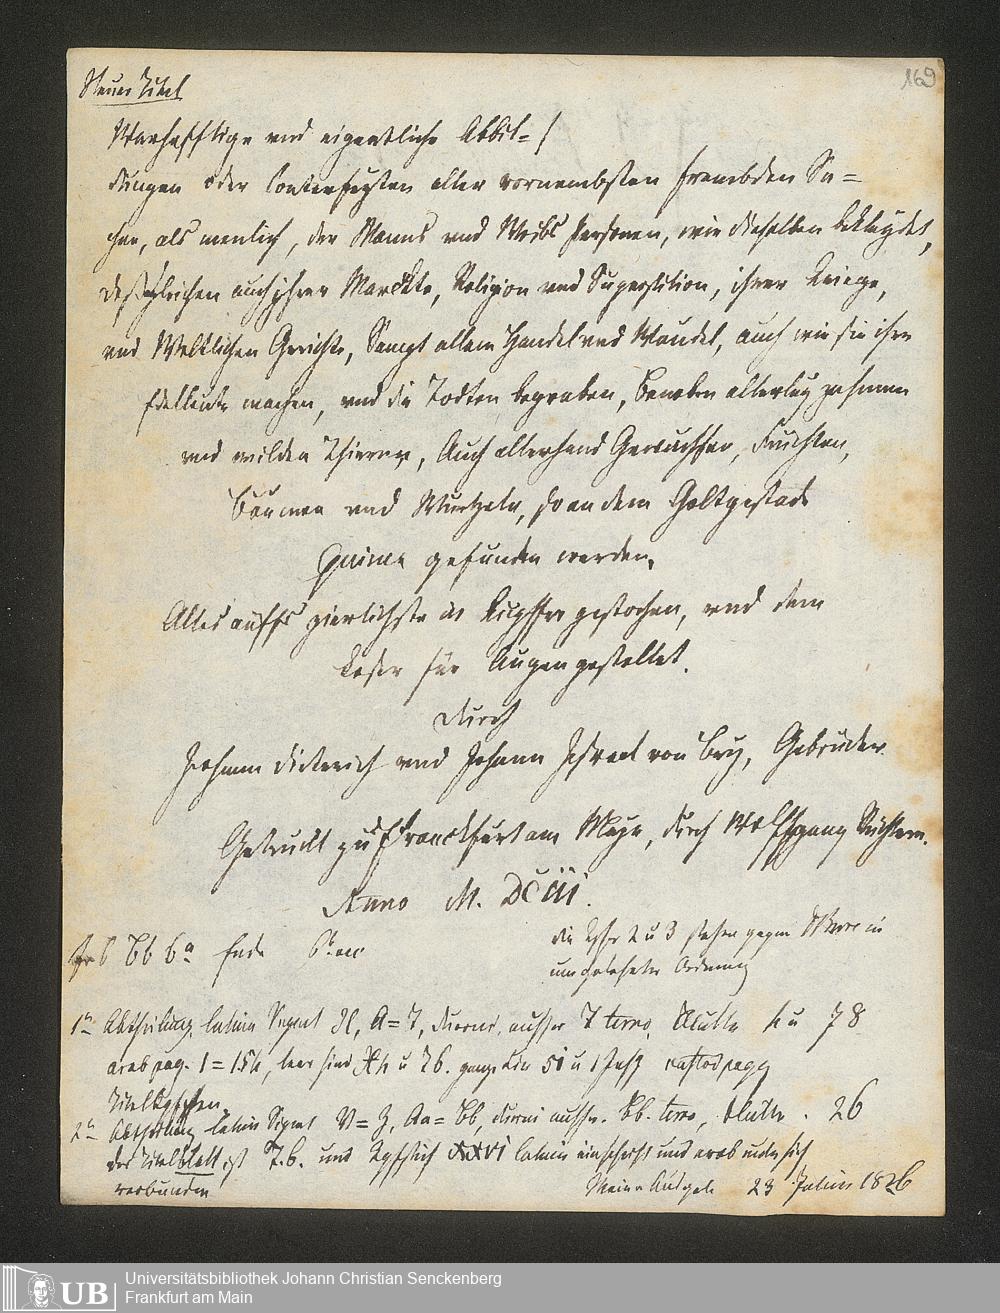 Neuer Titel
169
Warhafftige vnd eigentliche Abbil=
dungen oder Conterfeyten aller vornembsten frembden Sa=
chen, als menlich, der Manns vnd Weibs Personen, wie dieselben bekleydet,
deßgleichen auch jhrer Marckte, Religion vnd Superstition, ihrer Kriege,
vnd Weltlichen Gerichte, Sampt allem Handel vnd Wandel, auch wie sie ihre
Edelleute machen, vnd die Todten begraben, Beneben allerley zahmen
vnd wilden Thieren, Auch allerhand Gewächsen, Früchten,
Bäumen vnd Wurtzeln, so an dem Goltgestade
Guinea gefunden werden.
Alles auffs zierlichste in Kupffer gestochen, vnd dem
Leser für Augen gestellet.
Durch
Johann Dieterich vnd Johann Israel von Bry, Gebrüder.
Getruckt zu Franckfurt am Mayn, durch Wolffgang Richtern.
Anno M. DCiii.
6 Bb 6a Ende
die 2 u 3 stehen gegen in
umgekehrter Ordnung
1e Abtheilung, latein Signat A=T, duerni, ausser T terno, Blätter 78
arab pag. 1=154, leer sind u 76. 51 u
Titelkupfer
2e Abtheilung latein Signat V=Z, Aa=Bb, duerni ausser Bb. terno, Blätter. 26
des Titelblatt ist und Kupfstich XXVI latein und arab unter sich
verbunden
Meine Ausgabe 23 Julius 1826
UB
Universitätsbibliothek Johann Christian Senckenberg
Frankfurt am Main